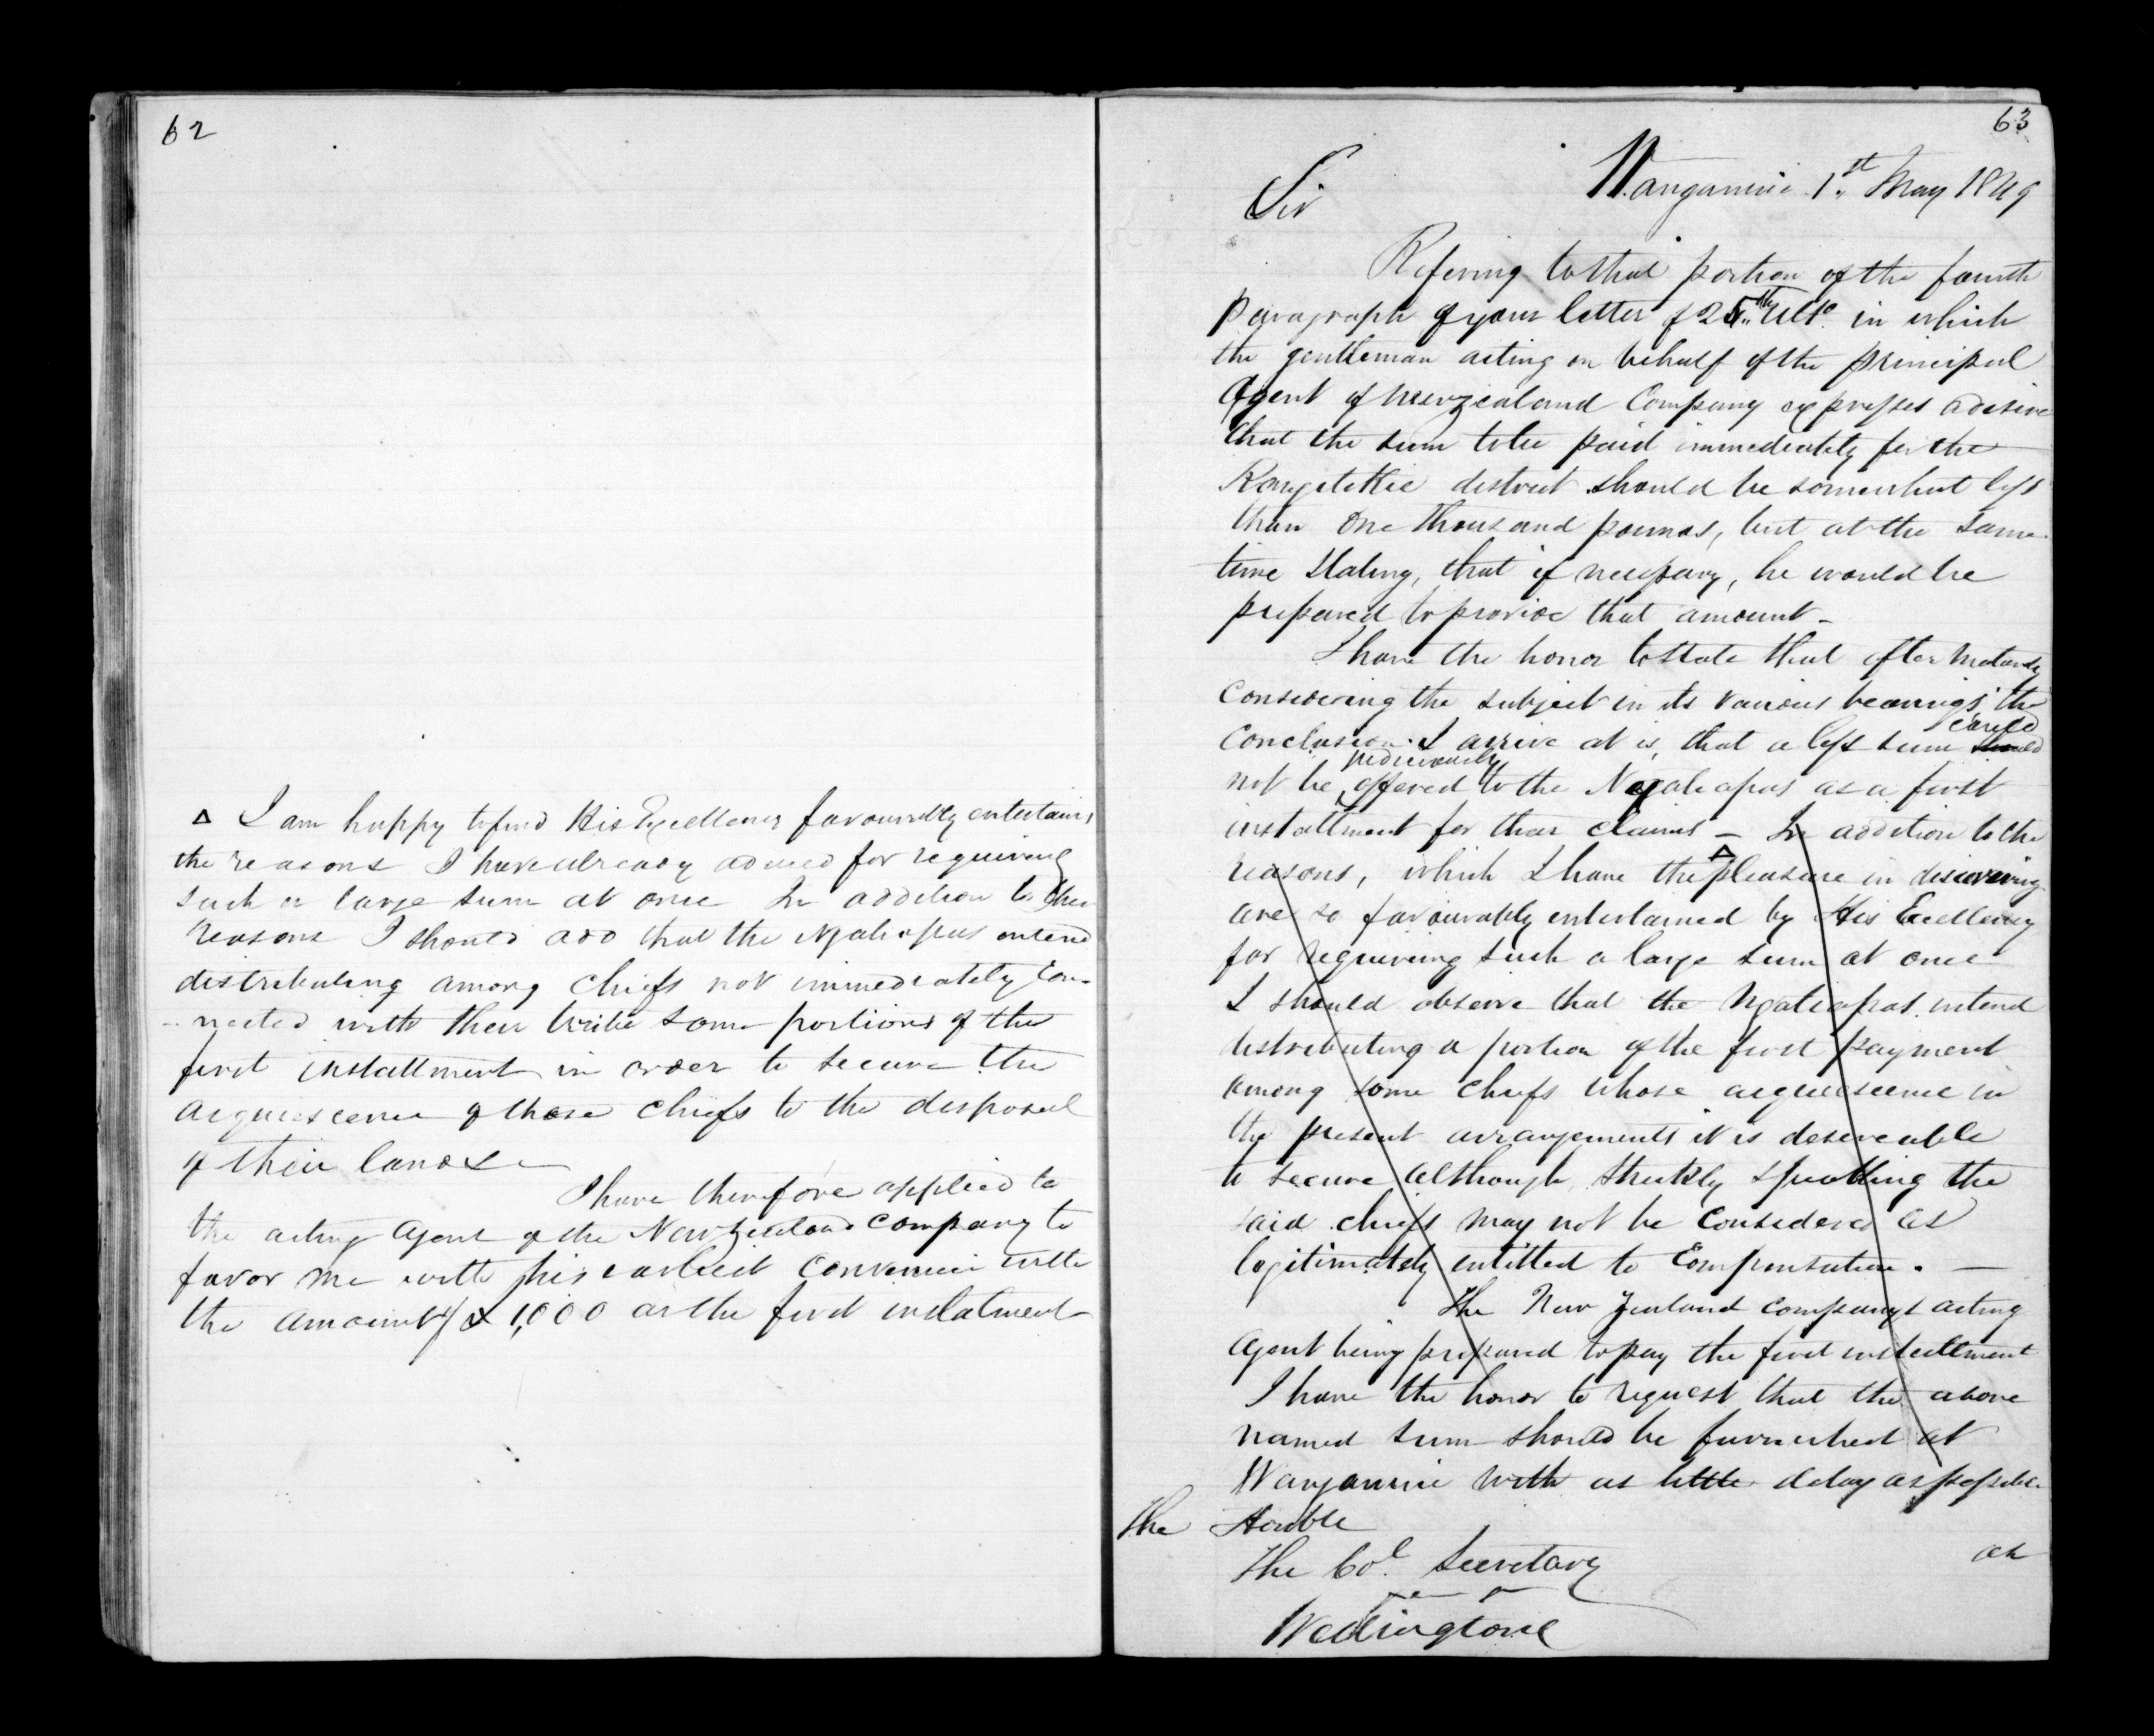 62
△ I am happy to find His Excellency favourably entertains
the reasons I have already adduced for requiring
such a large sum at once In addition to these
reasons I should add that the Ngatiapas intend
distributing among chiefs not immediately con-
-nected with their tribe some portions of the
first installment in order to secure the
acquiescence of those chiefs to the disposal
of their lands —
I have therefore applied to
the acting Agent of the New Zealand Company to
favor me with his earliest convenience with
the amount of £1,000 as the first instalment
63
Wanganui 1st May 1849
Sir
Refering to that portion of the fourth
paragraph of your letter of 25th Ulto. in which
the gentleman acting on behalf of the principal
Agent of New Zealand Company expresses a desire
that the sum to be paid immediately for the
Rangitikie district should be somewhat less
than One thousand pounds, but at the same
time Stating, that if necessary, he would be
prepared to provide that amount –
I have the honor to state that after maturely
Considering the subject in its various bearings the
could
Conclusion I arrive at is, that a less sum should
judiciously
not be offered to the Ngatiapas as a first
installment for their claims – In addition to the
△
reasons, which I have the pleasure in discovering
are so favourably entertained by His Excellency
for requiring such a large sum at once
I should observe that the Ngatiapas intend
distributing a portion of the first payment
among some Chiefs whose acquiescence in
the present arrangements it is desireable
to secure although, strictly speaking the
said chiefs may not be considered as
legitimately entitled to Compensation. —
The New Zealand Companys acting
Agent being prepared to pay the first installment
I have the honor to request that the above
named sum should be furnished at
Wanganui with as little delay as possible
The Honble
The Col. Secretary
as
Wellington